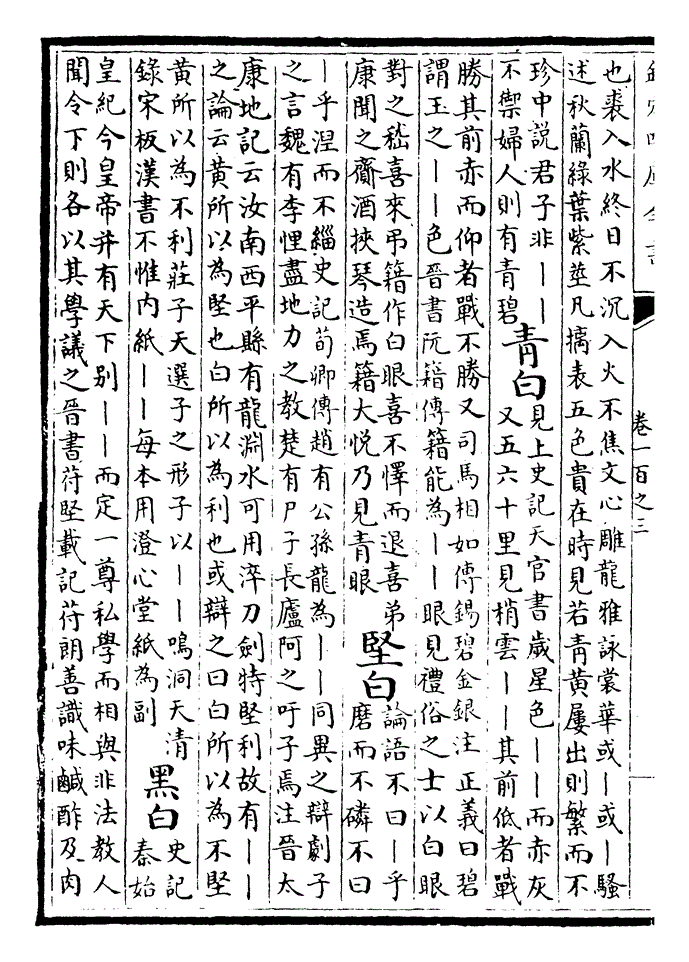 欽定四庫全書
卷一百之三
也裘入水終日不沉入火不焦文心雕龍雅詠裳華或丨或丨騷
述秋蘭綠葉紫莖凡摛表五色貴在時見若青黃屢出則繁而不
珍中說君子非丨丨
不禦婦人則有青碧
青白
見上史記天官書歲星色丨丨而赤灰
又五六十里見梢雲丨丨其前低者戰
勝其前赤而仰者戰不勝又司馬相如傳錫碧金銀注正義曰碧
謂玉之丨丨色晉書阮籍傳籍能為丨丨眼見禮俗之士以白眼
對之嵇喜來弔籍作白眼喜不懌而退喜弟
康聞之齎酒挾琴造焉籍大悅乃見青眼
堅白
論語不曰丨乎
磨而不磷不曰
丨乎涅而不緇史記荀卿傳趙有公孫龍為丨丨同異之辯劇子
之言魏有李悝盡地力之教楚有尸子長廬阿之吁子焉注晉太
康地記云汝南西平縣有龍淵水可用淬刀劍特堅利故有丨丨
之論云黃所以為堅也白所以為利也或辯之曰白所以為不堅
黃所以為不利莊子天選子之形子以丨丨鳴洞天清
錄宋板漢書不惟内紙丨丨每本用澄心堂紙為副
黑白
史記
秦始
皇紀今皇帝并有天下别丨丨而定一尊私學而相與非法教人
聞令下則各以其學議之晉書苻堅載記苻朗善識味鹹酢及肉